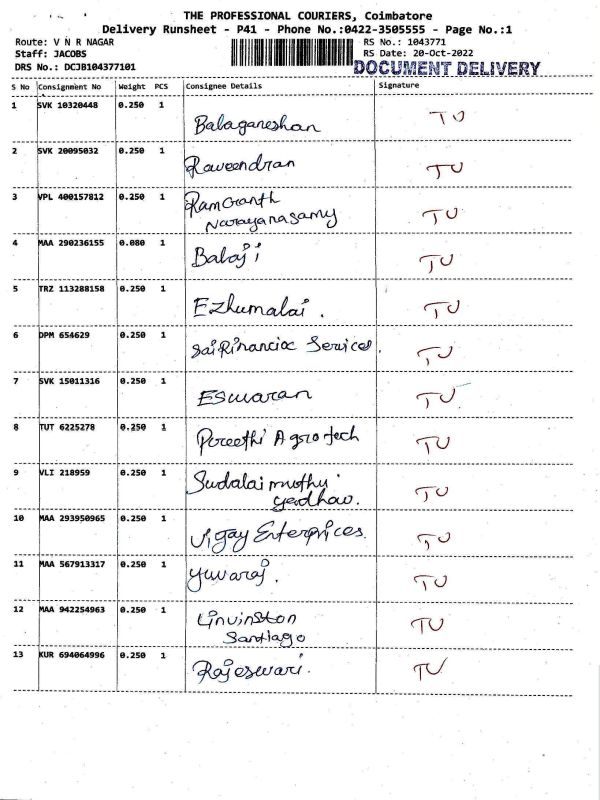 THE PROFESSIONAL COURIERS, Coimbatore
Delivery Runsheet - P41 - Phone No.:0422-3505555 - Page No.:1
Route: V N R NAGAR RS No.: 1043771
Staff: JACOBS RS Date: 20-Oct-2022
DRS No.: DCJB104377101 DOCUMENT DELIVERY
S No Consignment No Weight PCS Consignee Details Signature
1 SVK 10320448 0.250 1
Balaganeshan TU
2 SVK 20095032 0.250 1
Raveendran TU
3 VPL 400157812 0.250 1
Ramganth
Narayanasamy TU
4 MAA 290236155 0.080 1
Balaji TU
5 TRZ 113288158 0.250 1
Ezhumalai. TU
6 DPM 654629 0.250 1
Services. TU
7 SVK 15011316 0.250 1
Eswaran TU
8 TUT 6225278 0.250 1
Preethi Agro tech TU
9 VLI 218959 0.250 1
Sudalai muthu
yadhav. TU
10 MAA 293950965 0.250 1
Vijay Enterprices. TU
11 MAA 567913317 0.250 1
yuvaraj. TU
12 MAA 942254963 0.250 1
Linvinston
Santiago TU
13 KUR 694064996 0.250 1
Rajeswari. TU